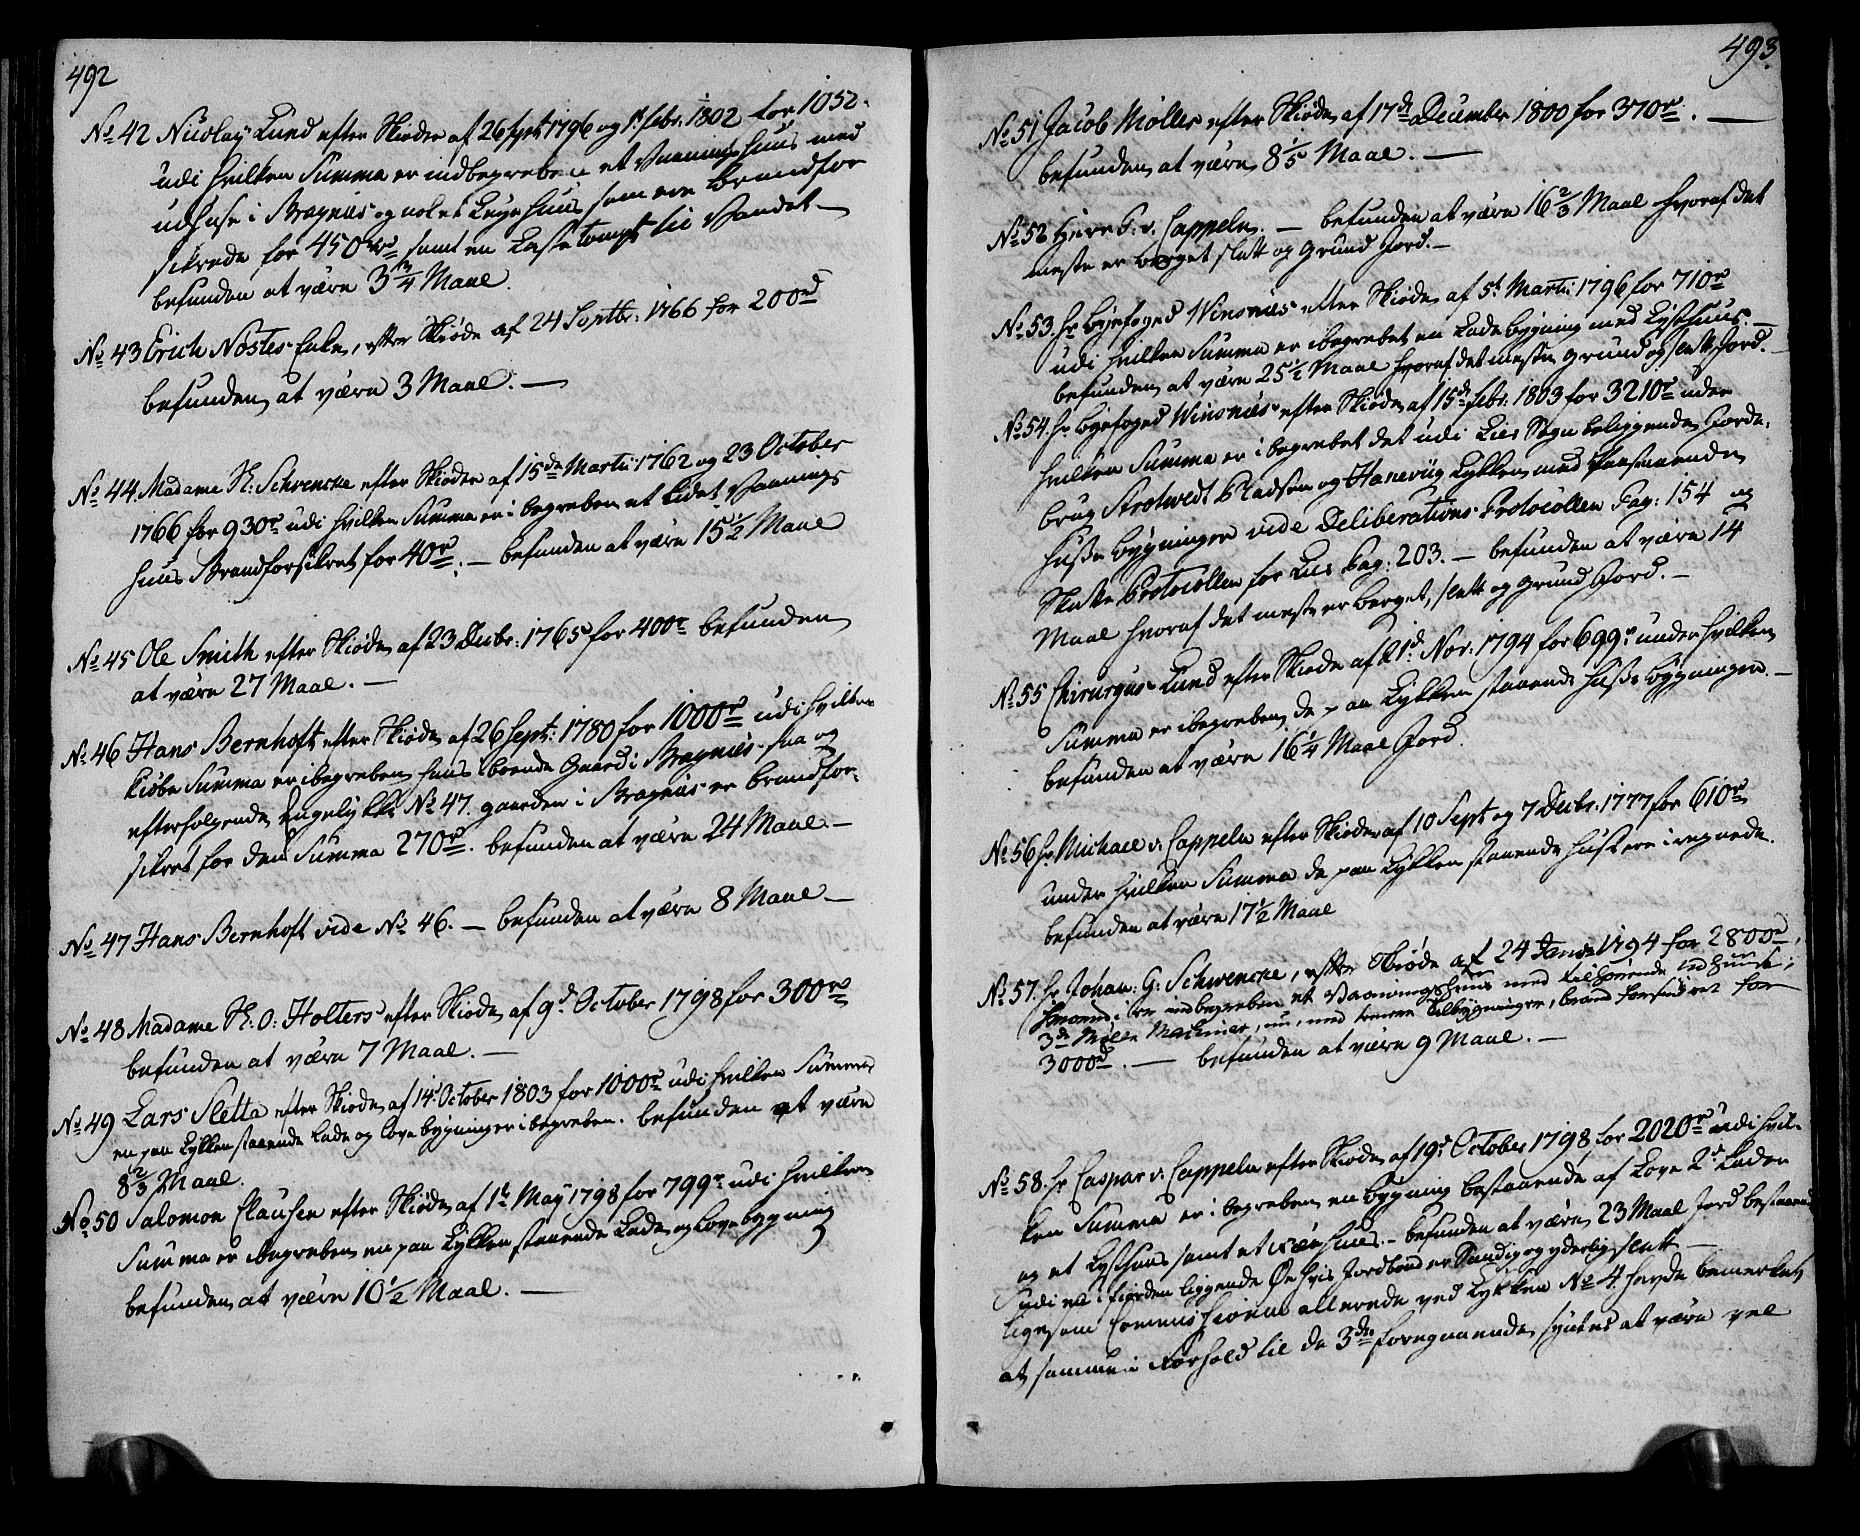 492
No 42 Nicolay Lund efter Skiøder af 26 Sept 1796 og 1t febr. 1802 for 1052.
udi hvilken Summa er indbegreben et Vaanings huus med
udhuse i Bragnæs og nok et Leye huus som ere brandfor
sikrede for 450 rd samt en Laste tompt til Vandet —
befunden at være 3 3/4 Maal.
No 43 Erich Nøstes Enke, efter Skiøde af 24 Septbr: 1766 for 200 rd
befunden at være 3 Maal. —
No 44 Madame Sl: Schwencke efter Skiøder af 15de Martii 1762 og 23 October
1766 for 930 r udi hvilken Summa er i begreben et Lidet Vaanings
huus Brandforsikret for 40 r. — befunden at være 15 1/2 Maal
No 45 Ole Smith efter Skiøde af 23 Decbr: 1765 for 400 r befunden
at være 27 Maal. —
No 46 Hans Bernhoft efter Skiøde af 26 Sept: 1780 for 1000 r udi hvilken
kiøbe Summa er ibegreben hans iboende Gaard i Bragnæs saa og
efterfølgende Engelykke No 47. gaarden i Bragnæs er brandfor-
sikret for den Summa 270 r. befunden at være 24 Maal. —
No 47 Hans Bernhoft vide No 46. — befunden at være 8 Maal —
No 48 Madame Sl. O: Holters efter Skiøde af 9d October 1798 for 300 rd
befunden at være 7 Maal. —
No 49 Lars Sletta efter Skiøde af 14 October 1803 for 1000 r udi hvilken Summa
en paa Lykken staaende Lade og Løve bygning er ibegreben. befunden at være
8 2/3 Maal.
No 50 Salomon Clausen efter Skiøde af 1t May 1798 for 799 r udi hvilken
Summa er ibegreben en paa Lykken staaende Lade og Løvebygning
befunden at være 10 1/2 Maal. —
493.
No 51 Jacob Møller efter Skiøde af 17de December 1800 for 370 r. —
befunden at være 8 1/5 Maal. —
No 52 Herr P. v. Cappelen. — befunden at være 16 2/3 Maal hvoraf det
meste er berget slætt og Grund Jord. —
No 53. Hr Byefoged Winsnæs efter Skiøde af 5t Martii 1796 for 710 r
udi hvilken Summa er ibegrebet en Lade bygning med Lysthuus. —
befunden at være 25 1/2 Maal hvoraf det meste grund og slætt Jord. —
No 54. Hr Byefoged Winsnæs efter Skiøde af 15de febr. 1803 for 3210 r uden
hvilken Summa er i begrebet det udi Lier Sogn beliggende Jorde.
brug Strøtvedt Pladsen og Hanevüg Lykken med paastaaende
Husse bygninger vide Deliberations Protocollen Pag: 154 og
Skatte Protocollen for Lier Pag: 203. — befunden at være 14
Maal hvoraf det meste er berget, slætt og grund Jord. —
No 55 Chirurgus Lund efter Skiøde af 21d Nov. 1794 for 699 r under hvilken
Summa er ibegreben de paa Lykken staaende Husse bygninger. —
befunden at være 16 1/4 Maal Jord.
No 56 Hr Michael v. Cappelen efter Skiøder af 10 Sept og 7 Decbr. 1777 for 610 r
under hvilken Summa de paa Lykken staaende Huse ere iregnede.
befunden at være 17 1/2 Maal
No 57. Hr Johan: G: Schwencke, efter Skiøde af 24 1794 for 2800 rd,
hvorudi er indbegreben et Vaaningshuus med tilhørende Udhuuse,
3de Mølle Machiner, nu, med senere Tilbygninger, brand forsikret for
3000 rd. — befunden at være 9 Maal. —
No 58. Hr Caspar v. Cappelen efter Skiøde af 19d October 1798 for 2020 r udi hvil-
ken Summa er i begreben en bygning bestaaende af Love 2de Lader
og et Lysthuus samt et huus. — befunden at være 23 Maal Jord bestaaende
udi en i fiorden liggende Øe hvis Jordbond er Sandig og yderlig slætt —
ligesom allerede ved Lykken No 4 havde bemerket
at samme i Forhold til de 3de foregaaende syntes at være vel